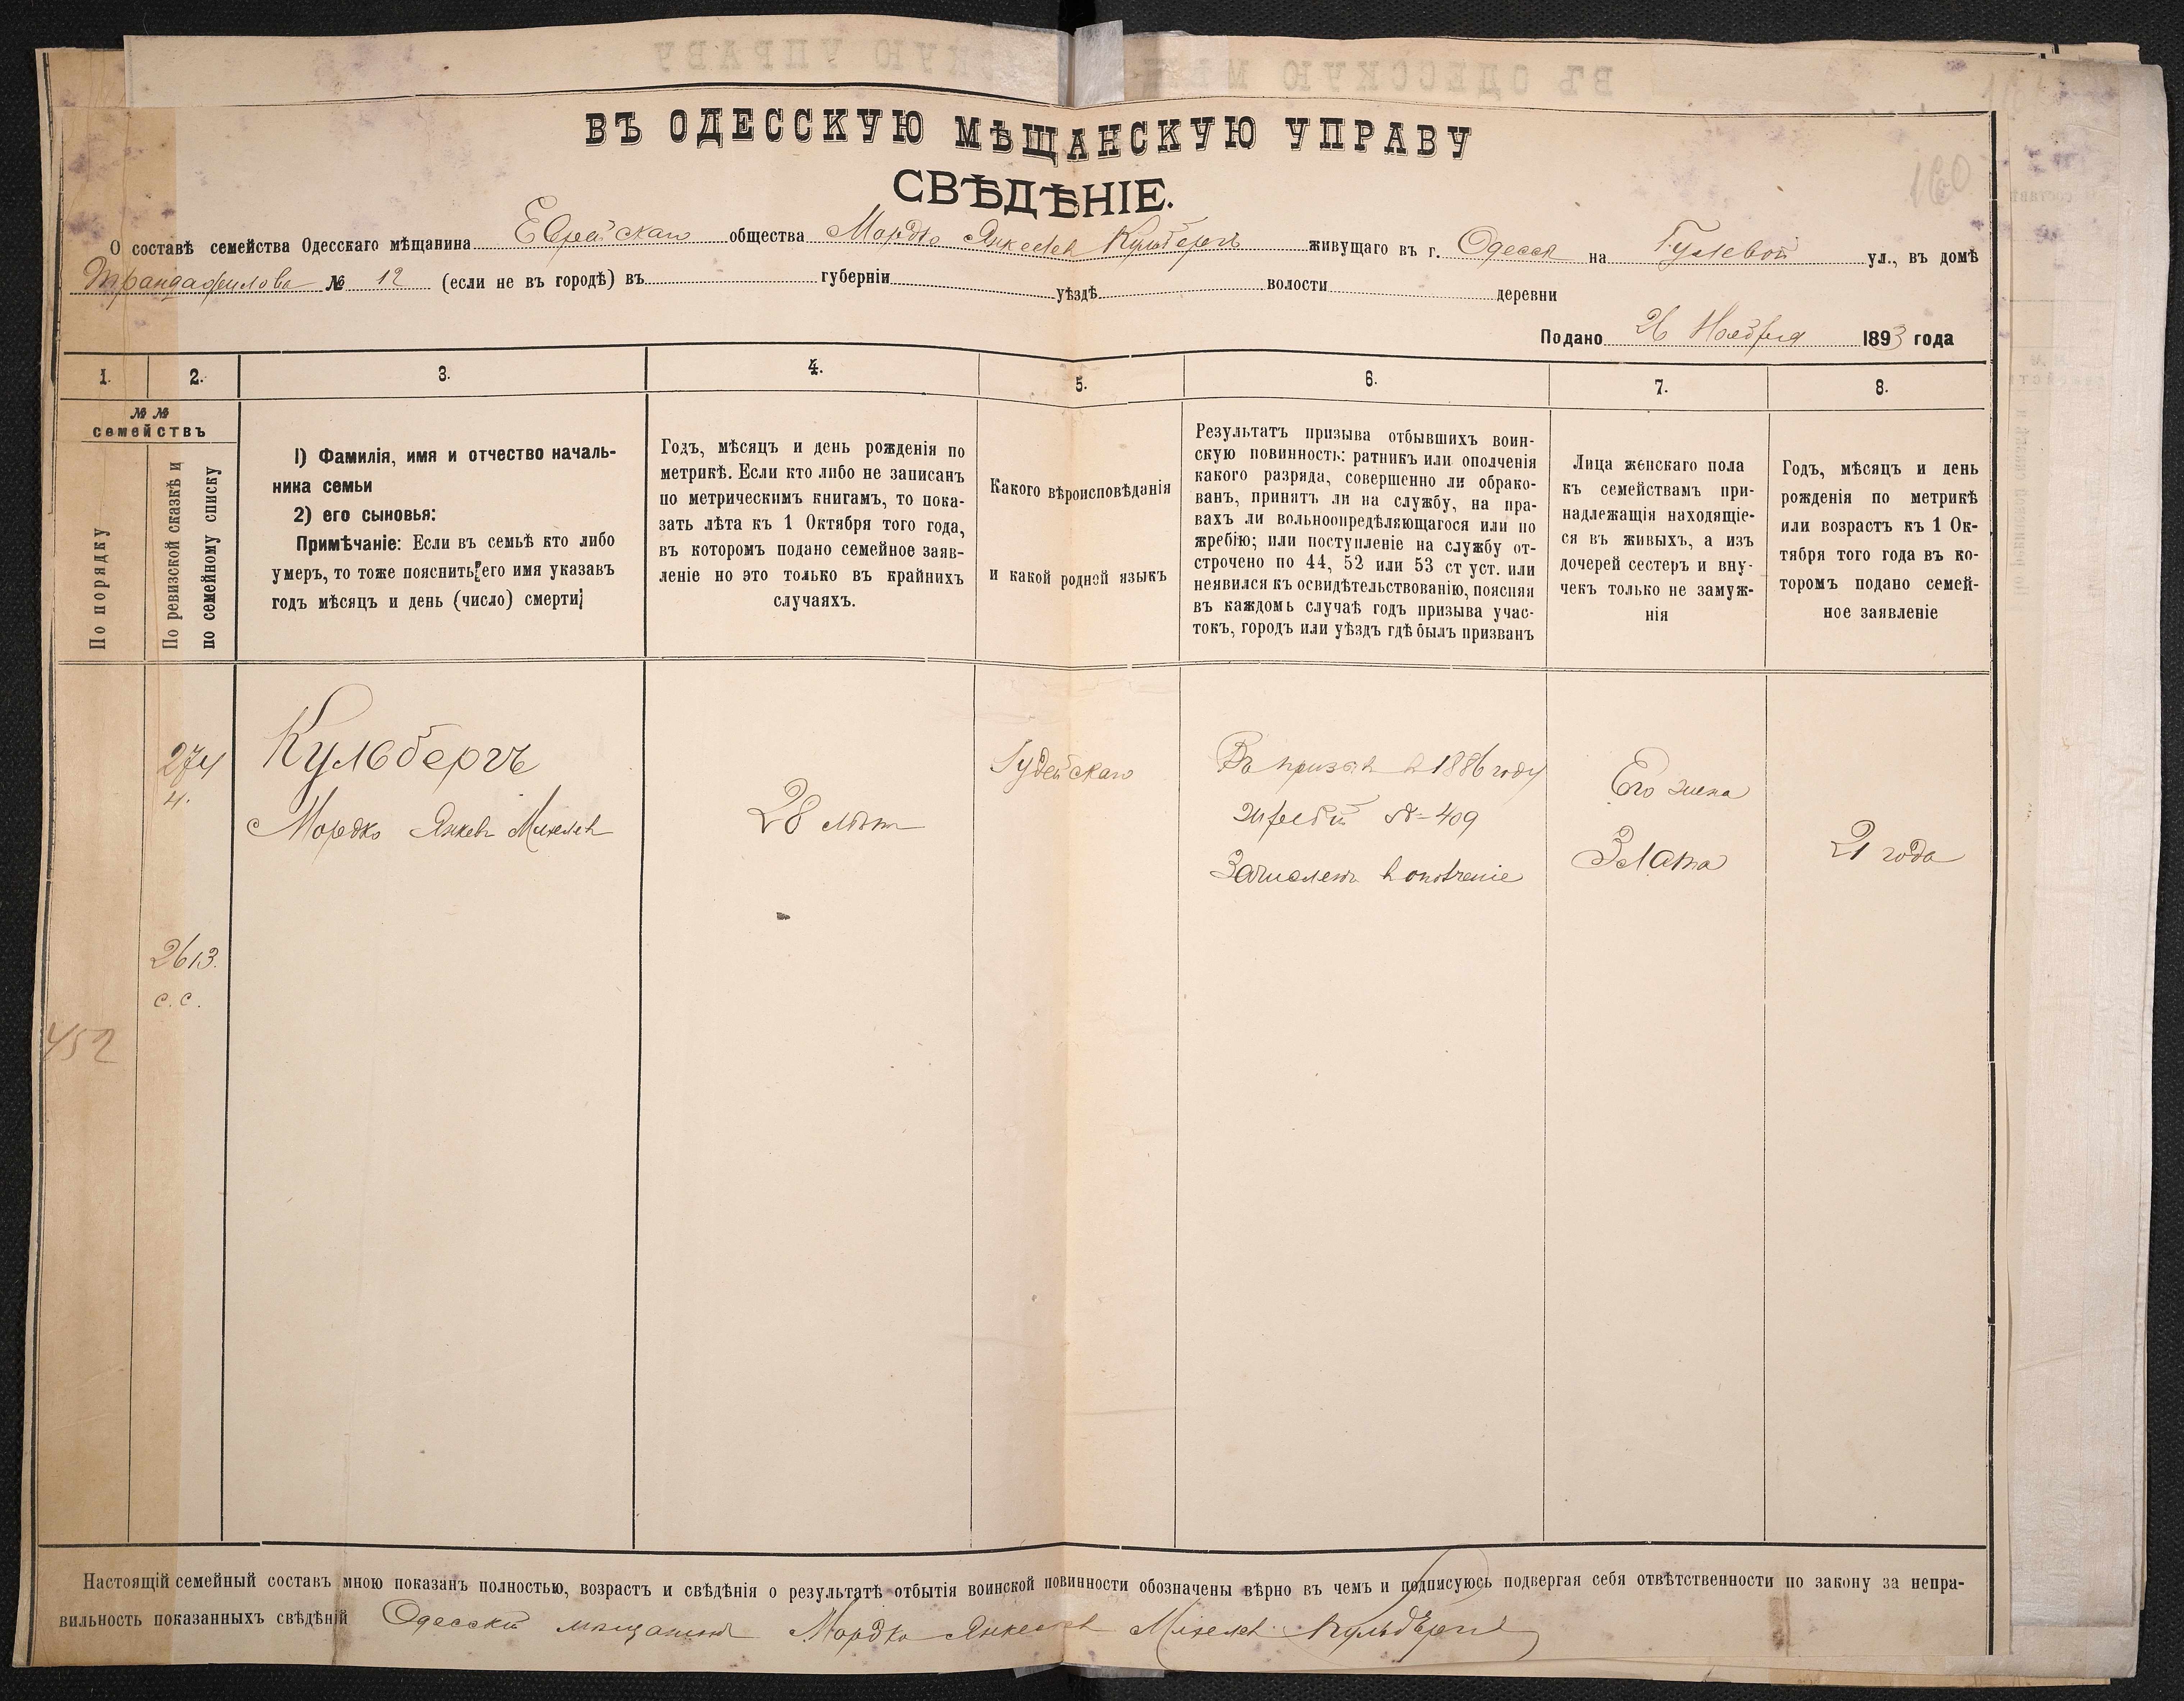 ВЪ ОДЕССКУЮ МѢЩАНСКУЮ УПРАВУ
СВѢДѢНІЕ.
О составѣ семейства Одесскаго мѣщанина Еврейскаго общества Мордко Янкелев Кульбергъ живущаго въ г. Одесса на Гулевой ул., въ домѣ
Трандафилова № 12 (если не въ городѣ) въ губерніи уѣздѣ волости деревни
Подано 26 Ноября 1893 года
1. 2. 3. 4. 5. 6. 7. 8.
№№
семействъ
По порядку
По ревизской сказкѣ и
по семейному списку
1) Фамилія, имя и отчество началь-
ника семьи
2) его сыновья:
Примѣчаніе: Если въ семьѣ кто либо
умеръ, то тоже пояснить его имя указавъ
годъ мѣсяцъ и день (число) смерти;
Годъ, мѣсяцъ и день рожденія по
метрикѣ. Если кто либо не записанъ
по метрическимъ книгамъ, то пока-
зать лѣта къ 1 Октября того года,
въ которомъ подано семейное заяв-
леніе но это только въ крайнихъ
случаяхъ.
Какого вѣроисповѣданія
и какой родной языкъ
Результатъ призыва отбывшихъ воин-
скую повинность: ратникъ или ополченія
какого разряда, совершенно ли обрако-
ванъ, принятъ ли на службу, на пра-
вахъ ли вольноопредѣляющагося или по
жребію; или поступленіе на службу от-
строчено по 44, 52 или 53 ст уст. или
неявился къ освидѣтельствованію, поясняя
въ каждомь случаѣ годъ призыва учас-
токъ, городъ или уѣздъ гдѣ былъ призванъ
Лица женскаго пола
къ семействамъ при-
надлежащія находящіе-
ся въ живыхъ, а изъ
дочерей сестеръ и вну-
чекъ только не замуж-
нія
Годъ, мѣсяцъ и день
рожденія по метрикѣ
или возрастъ къ 1 Ок-
тября того года въ ко-
торомъ подано семей-
ное заявленіе
274
Кульбергъ
Мордко Янкев Михелев
28 лѣт
Іудейскаго
В призыв в 1886 году
жребій № 409
Зачислен в ополчение
Его жена
Злата
21 года
2613.
с.с.
452
160
Настоящій семейный составъ мною показанъ полностью, возрастъ и свѣдѣнія о результатѣ отбытія воинской повинности обозначены вѣрно въ чемъ и подписуюсь подвергая себя отвѣтственности по закону за непра-
вильность показанныхъ свѣдѣній Одесскій мѣщанин Мордко Янкелев Михелев Кульбергъ